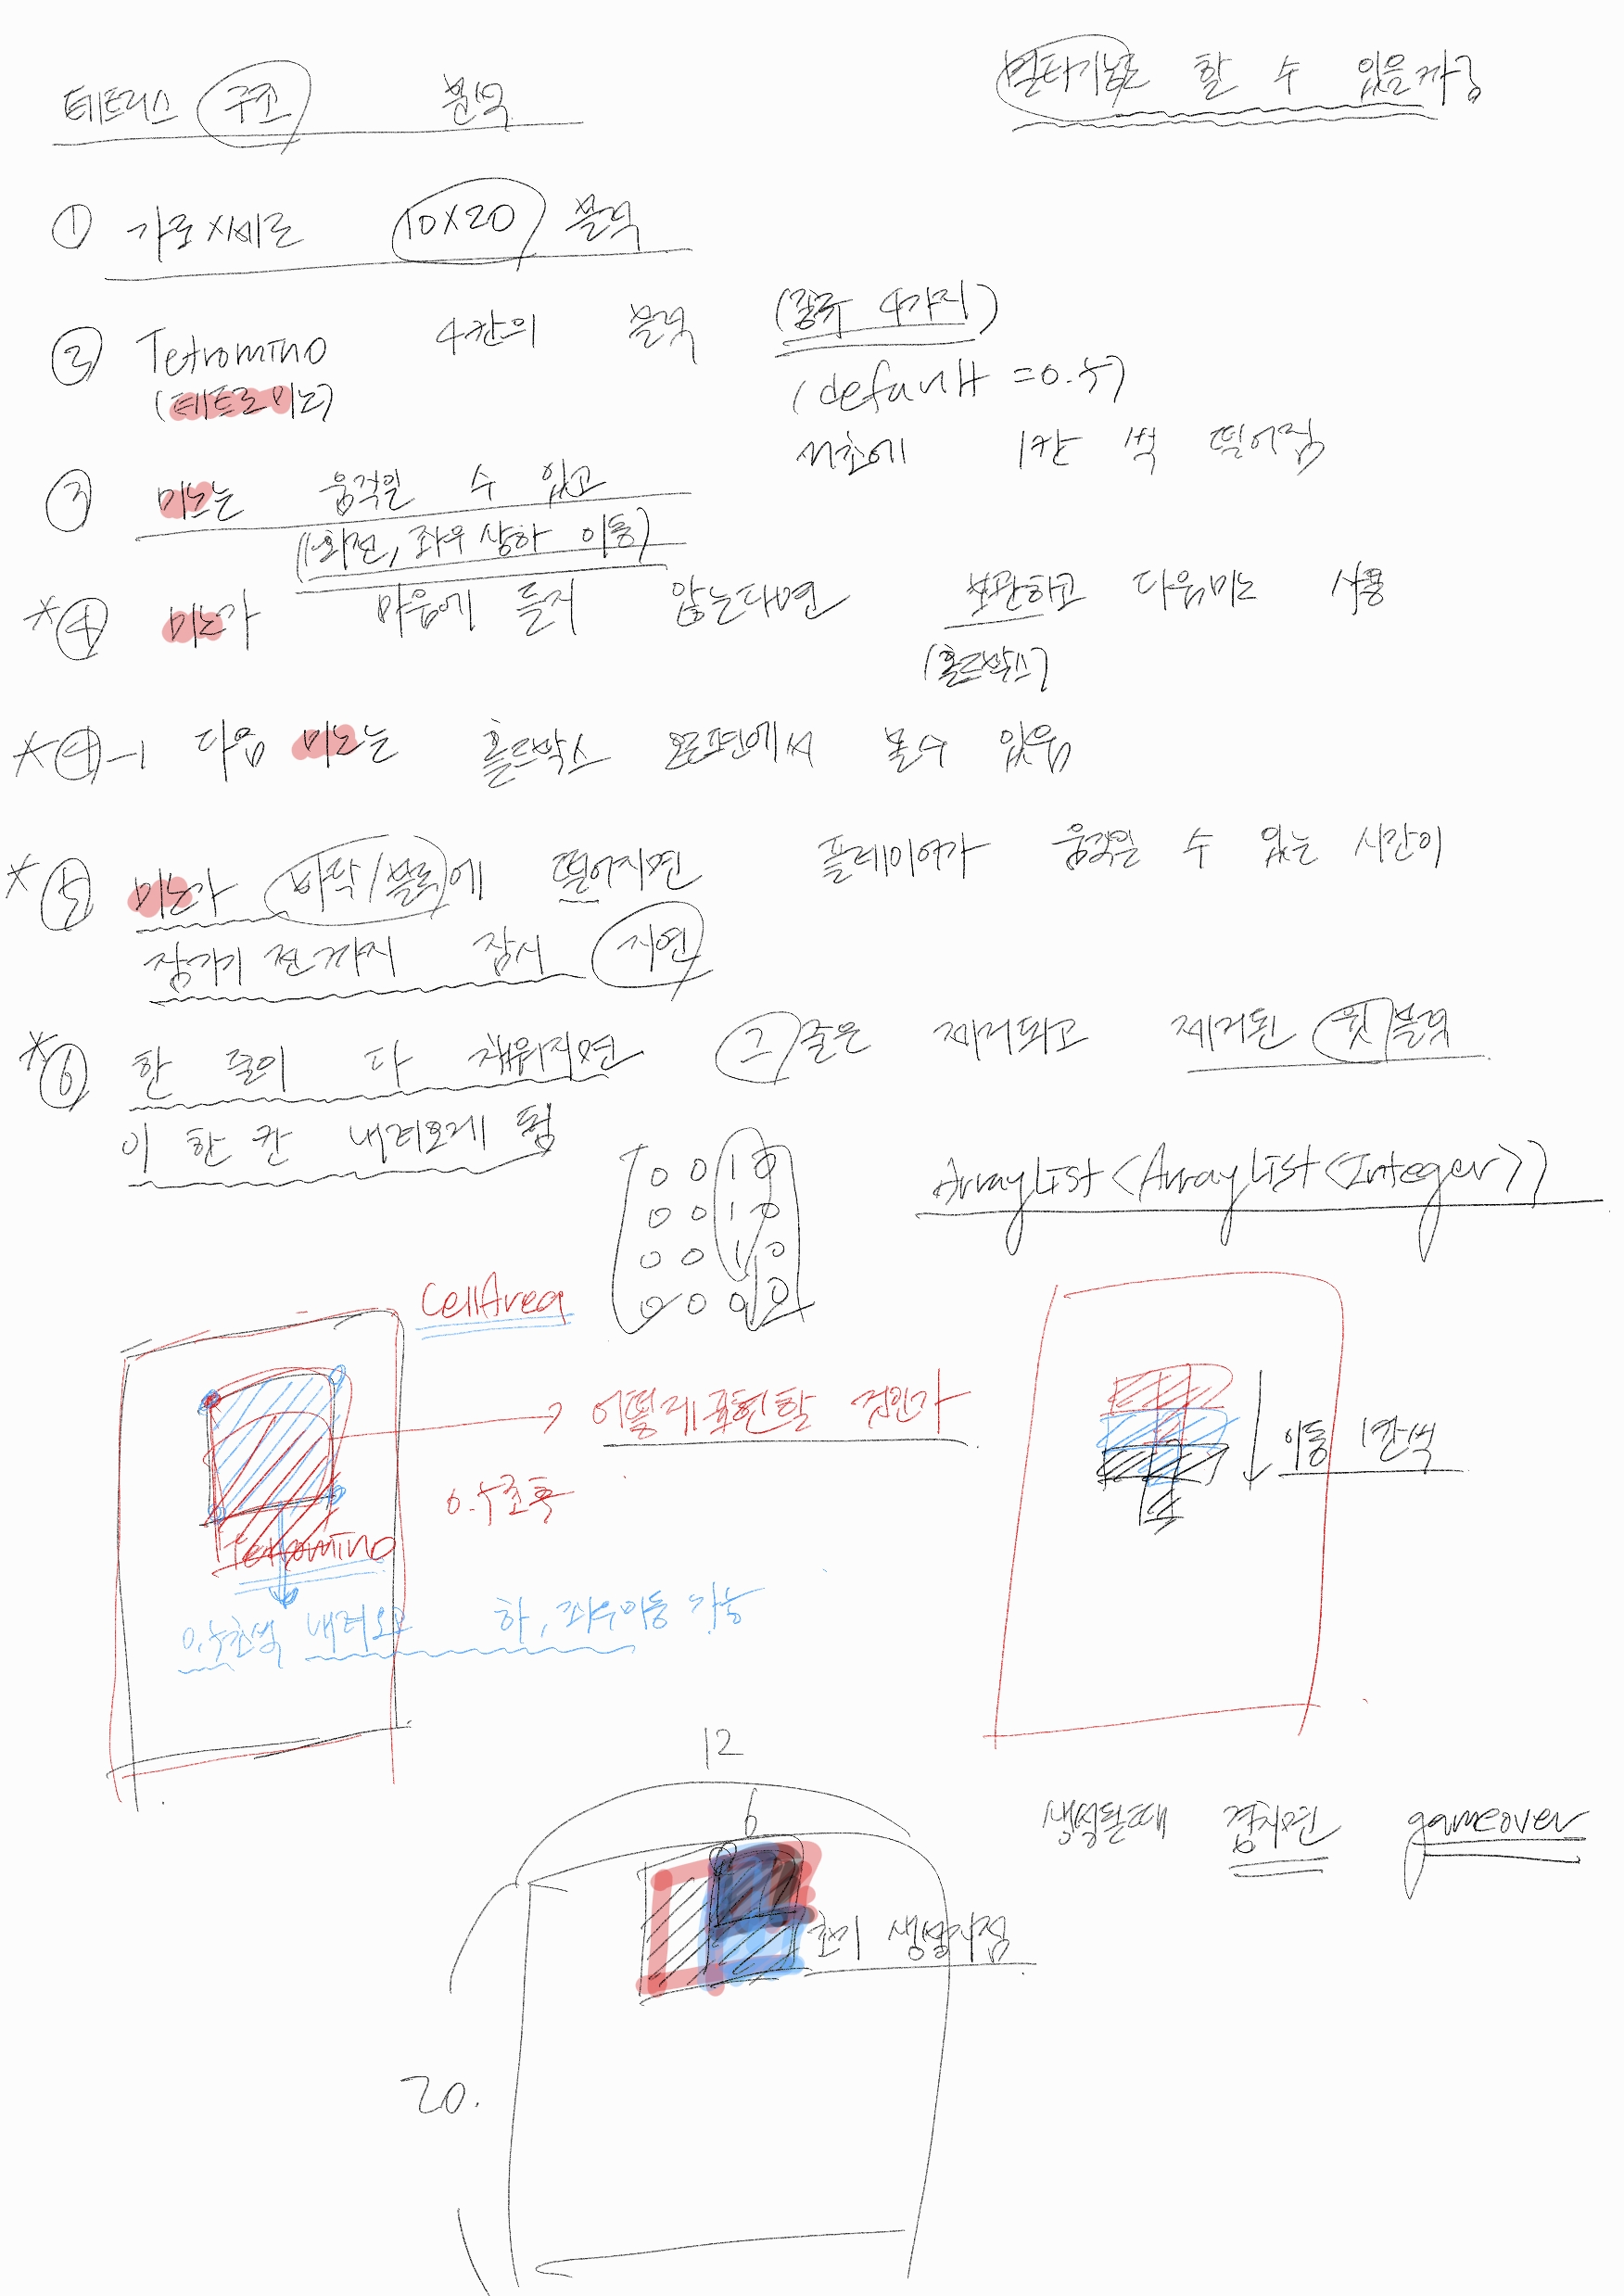 테트리스 구조 분석
멀티기능도 할 수 있을까?
① 가로x세로 10X20 블럭
② Tetromino 4칸의 블럭 (종류 4가지)
(테트로미노)
(default = 0.5)
N초에 1칸 씩 떨어짐
③ 미노는 움직일 수 있고
(회전, 좌우상하 이동)
*④ 미노가 마음에 들지 않는다면 보관하고 다음미노 사용
(홀드박스)
*④-1 다음 미노는 홀드박스 오른편에서 볼수 있음
*⑤ 미노가 바닥/블록에 떨어지면 플레이어가 움직일 수 있는 시간이
잠기기 전까지 잠시 지연
*⑥ 한 줄이 다 채워지면 그 줄은 제거되고 제거된 윗블럭
이 한 칸 내려오게 됨
0 0 1 0
0 0 1 0
0 0 1 0
0 0 0 0
ArrayList<ArrayList<Integer>>
CellArea
어떻게 표현할 것인가
0.5초후
Tetromino
0.5초씩 내려오고 하, 좌우이동 가능
이동 1칸씩
12
6
생성될때 겹치면 gameover
초기 생성지점
20.